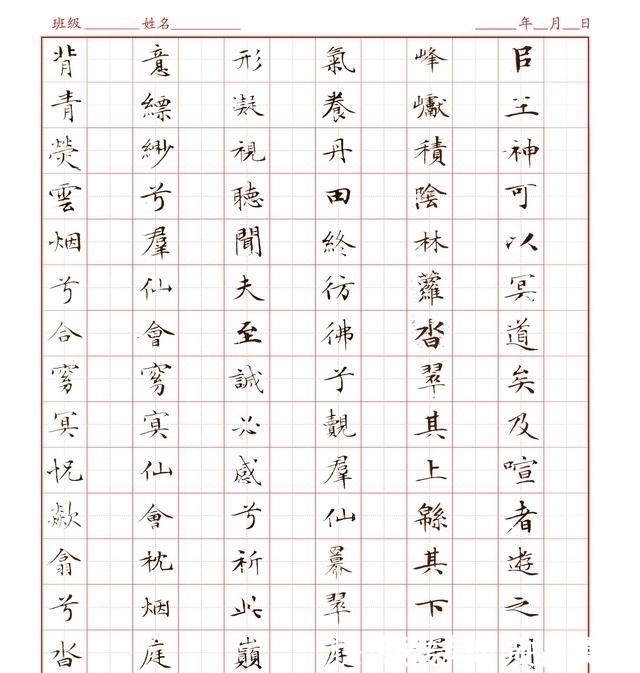 班级 姓名 年 月 日
㠯王神可以冥道矣及喧者遊之則
峰巘積陰林蘿沓翠其上緜其下深
氣養丹田終彷彿乎覿羣仙冪翠庭
形凝視聽聞夫至誠必感兮祈此巔
意縹緲兮羣仙會窈冥仙會兮枕烟庭
背青熒雲烟兮合窈冥怳歘翕兮沓